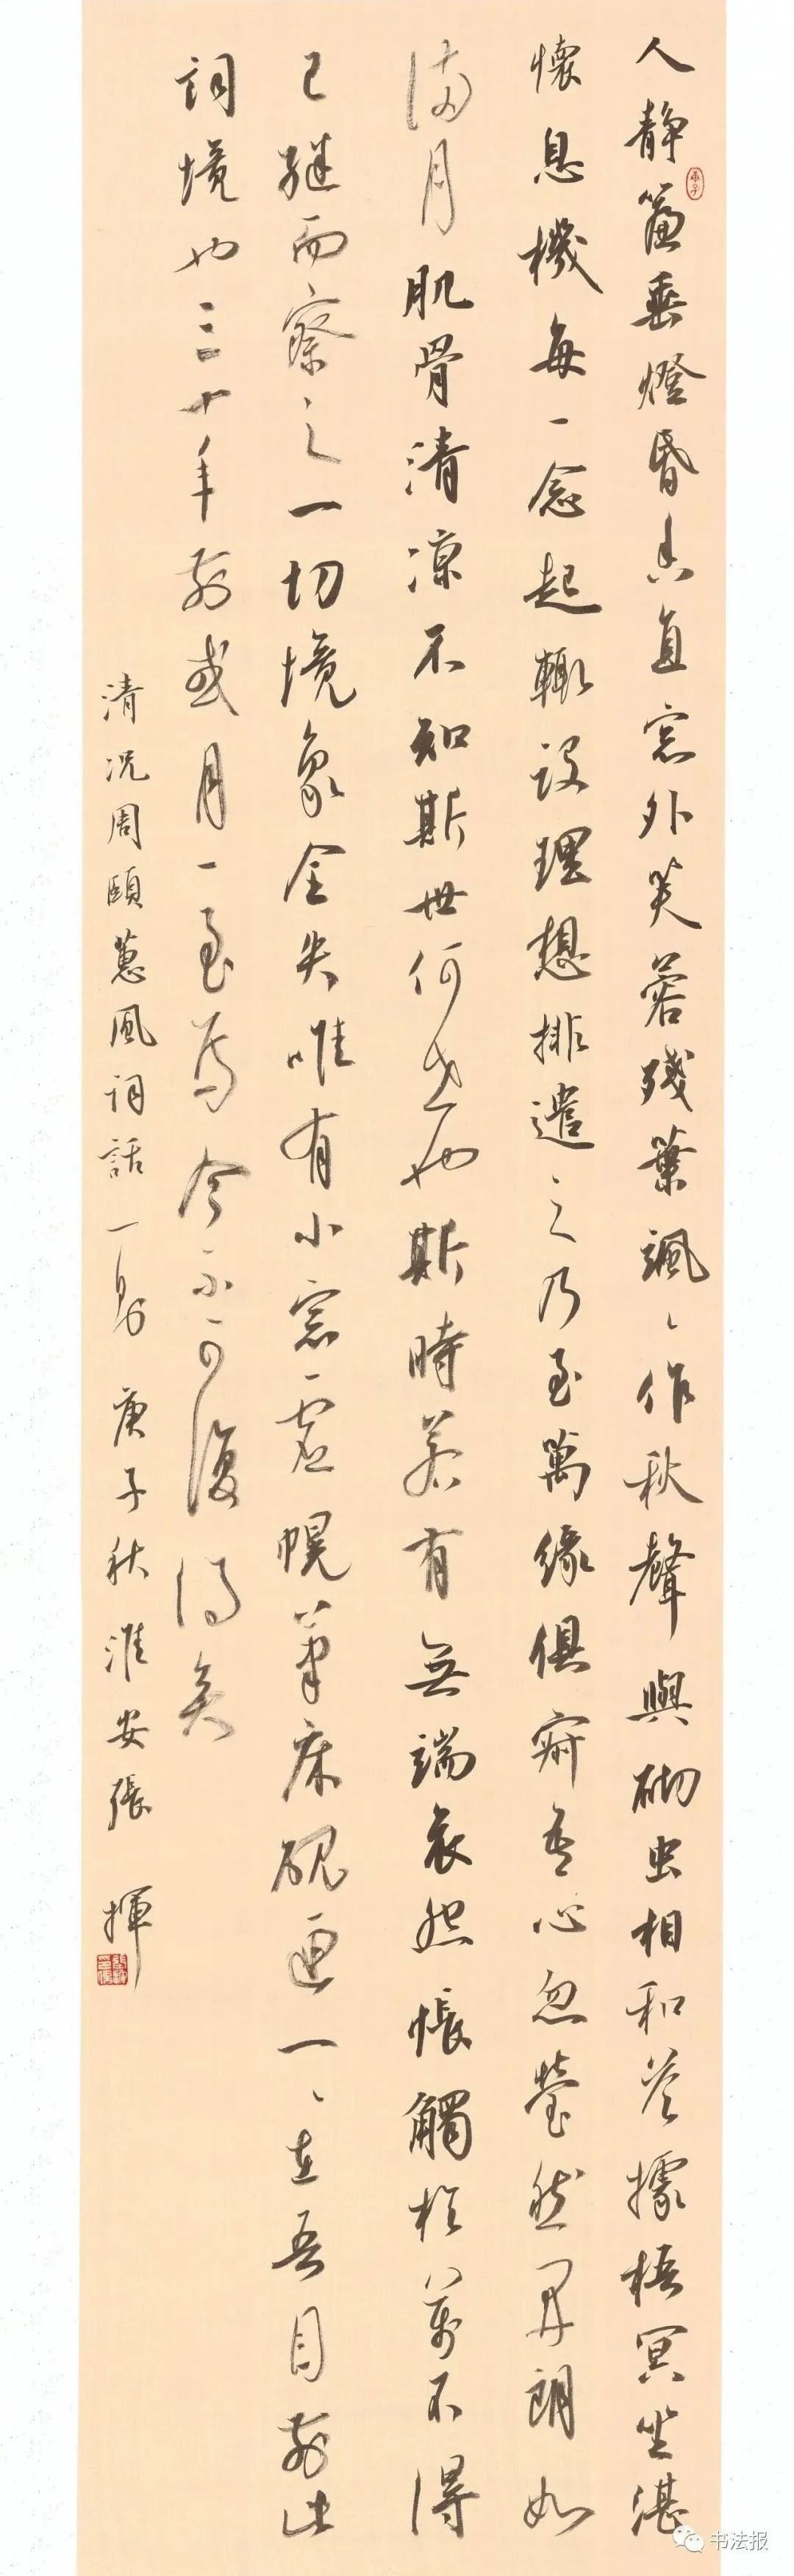 人静簾垂燈昏香直窓外芙蓉殘葉颯〻作秋聲與砌虫相和答據梧冥坐湛
懷息機每一念起輒設理想排遣之乃至萬緣俱寂吾心忽瑩然開朗如
滿月肌骨清涼不知斯世何世也斯時若有無端哀怨悵觸於萬不得
已繼而察之一切境象全失唯有小窓虛幌筆床硯匣一〻在吾目前此
詞境也三十年前或月一至焉今不可復得矣
清况周頤蕙風詞話一則 庚子秋 淮安張揮
书法报